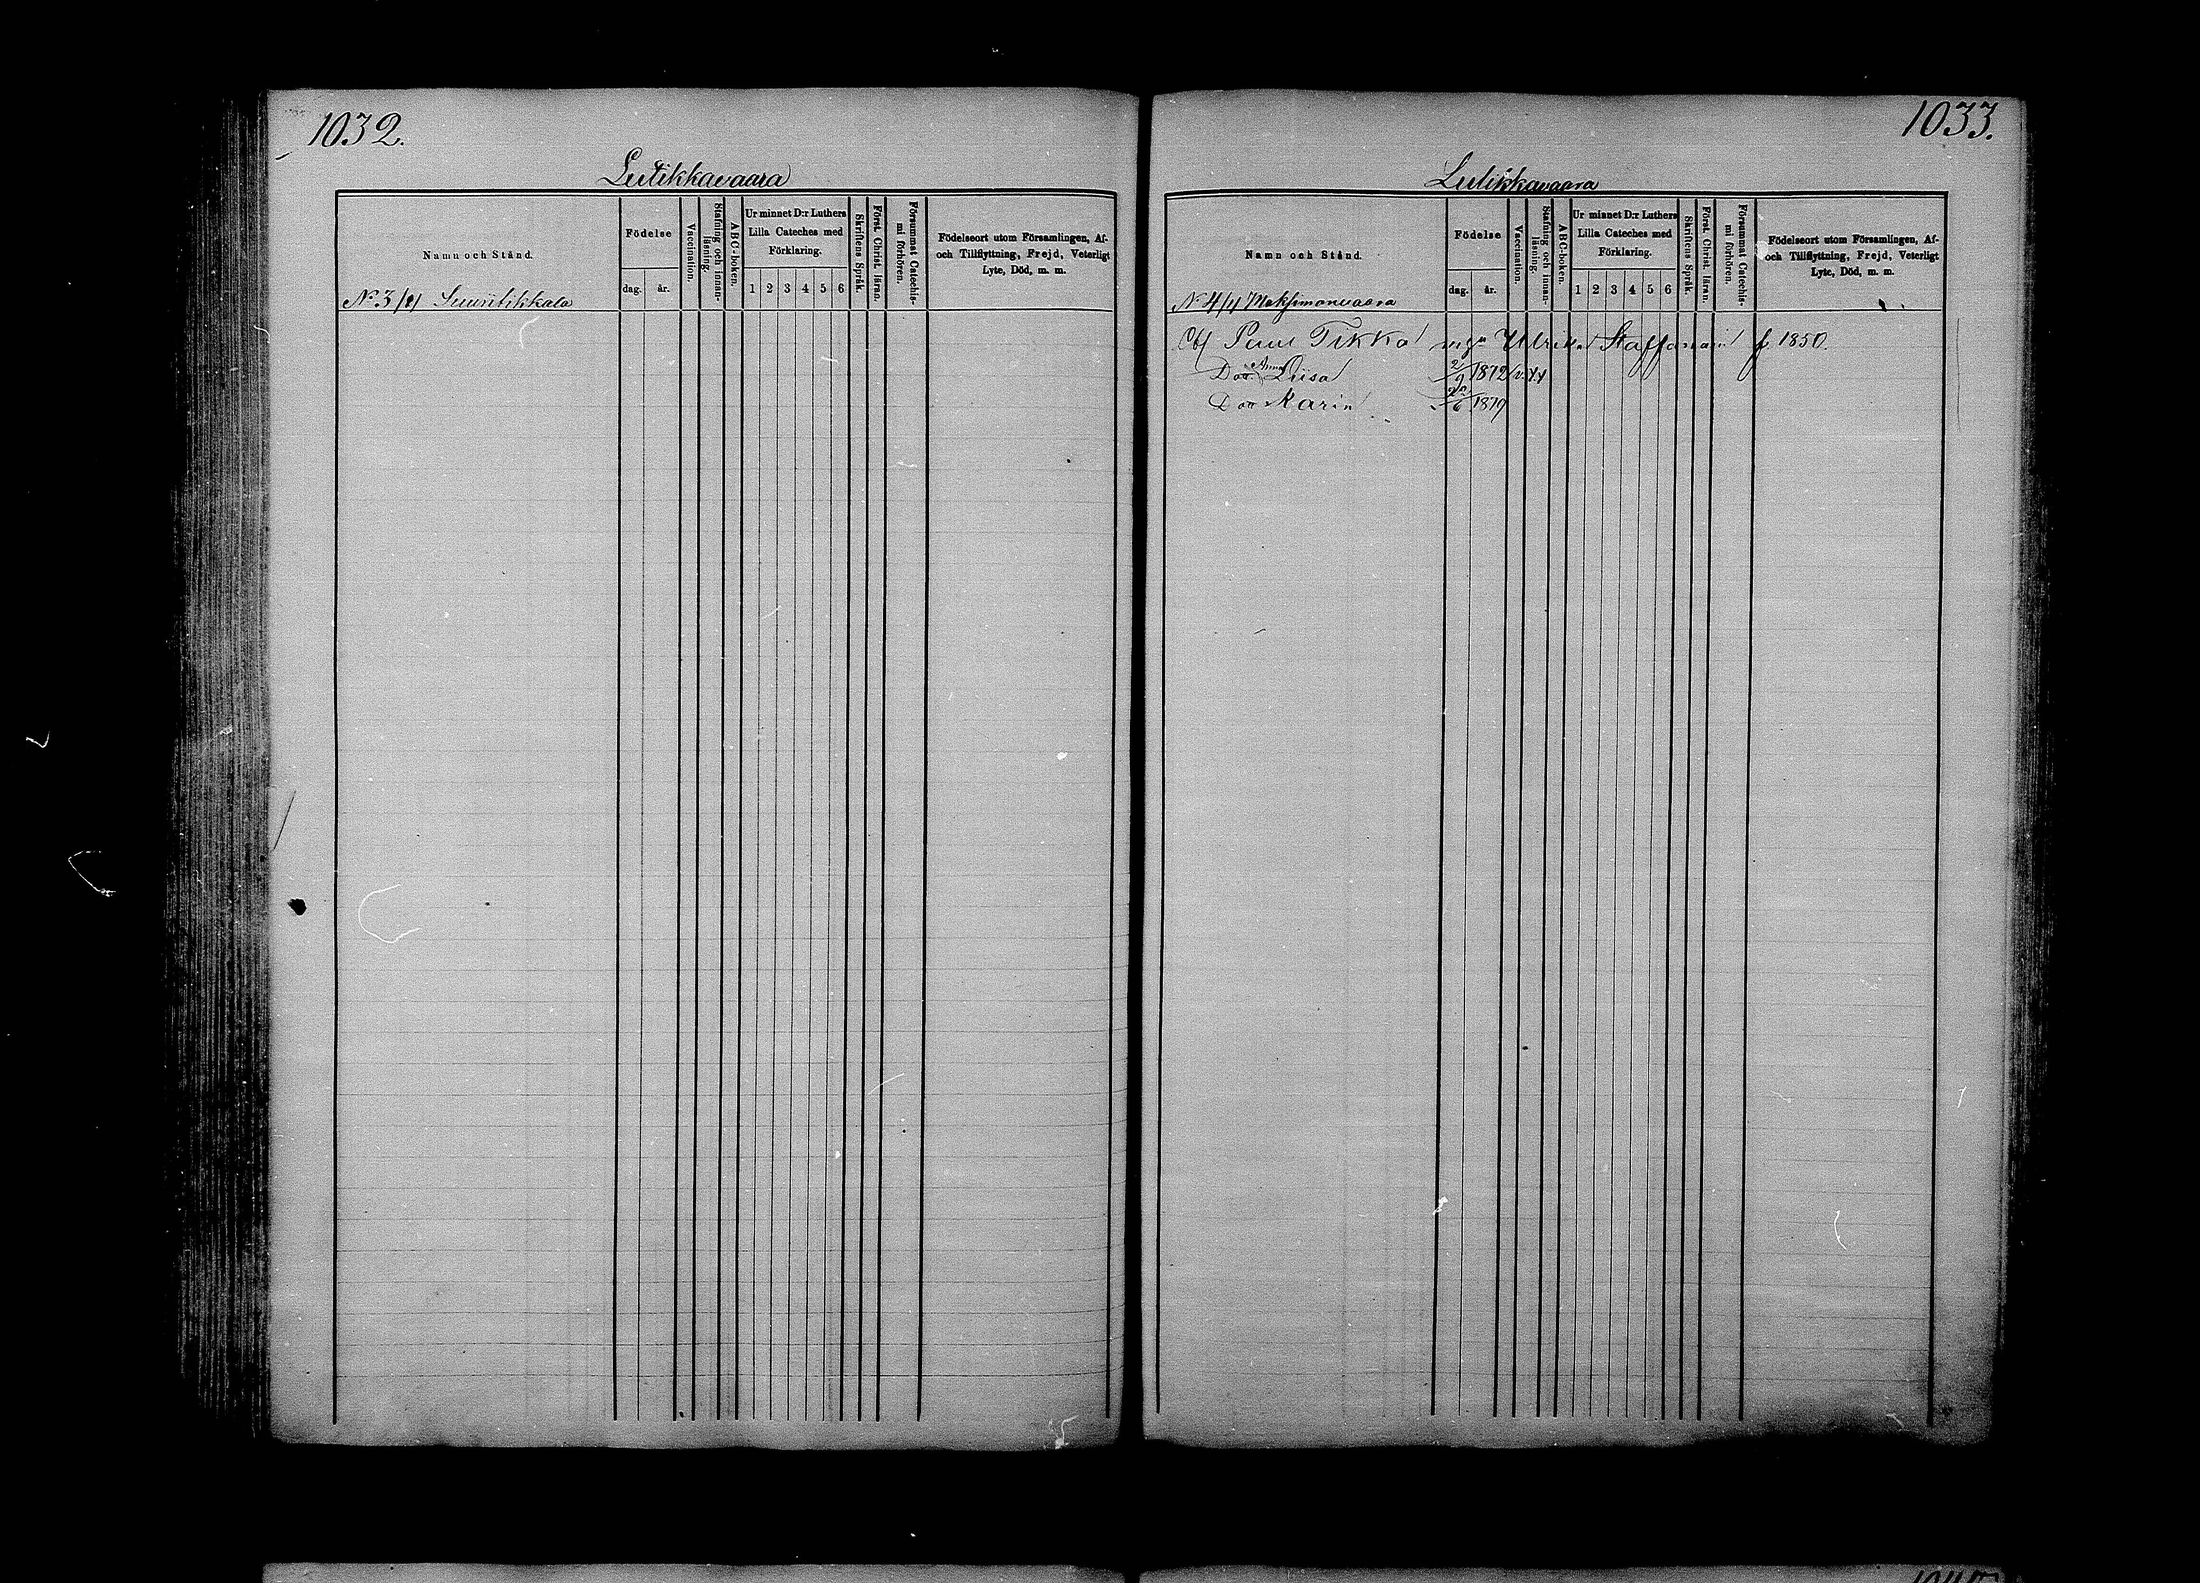 1032.
Lutikkavaara
Namn och Stånd.
Födelse
dag.
år.
Vaccination.
Stafning och innanläsning.
ABC-boken.
Ur minnet D:r Luthers
Lilla Cateches med
Förklaring.
1 2 3 4 5 6
Skriftens Språk.
Först. Christ. läran.
Försummat Catechismi förhören.
Födelseort utom Församlingen, Af-
och Tillflyttning, Frejd, Veterligt
Lyte, Död, m. m.
No 3 Suuritikkala
1033.
Lutikkavaara
Namn och Stånd.
Födelse
dag.
år.
Vaccination.
Stafning och innanläsning.
ABC-boken.
Ur minnet D:r Luthers
Lilla Cateches med
Förklaring.
1 2 3 4 5 6
Skriftens Språk.
Först. Christ. läran.
Försummat Catechismi förhören.
Födelseort utom Församlingen, Af-
och Tillflyttning, Frejd, Veterligt
Lyte, Död, m. m.
No 4 Maksimanvaara
Tikka Ulrika f. 1850.
Anna
Liisa 1872 v.
Karin 1879